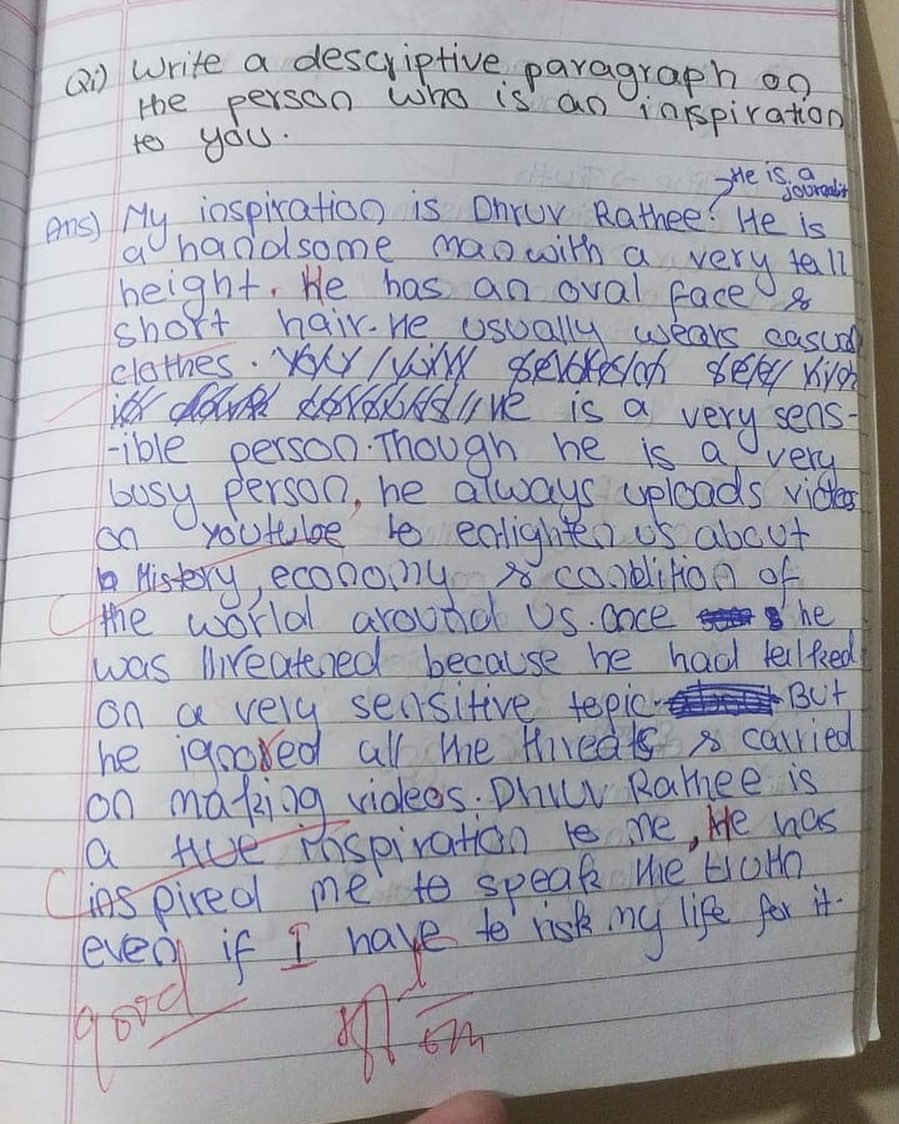 Qi) Write a descriptive paragraph on
the person who is an inspiration
to you.
He is a
journalist
Ans) My inspiration is Dhruv Rathee. He is
a handsome man with a very tall
height. He has an oval face &
short hair. He usually wears casual
clothes.
He is a very sens-
-ible person. Though he is a very
busy person, he always uploads videos
on youtube to enlighten us about
History, economy & condition of
the world around us. once he
was threatened because he had talked
on a very sensitive topic. But
he ignored all the threats & carried
on making videos. Dhruv Rathee is
a true inspiration to me, He has
inspired me to speak the truth
even if I have to risk my life for it.
good